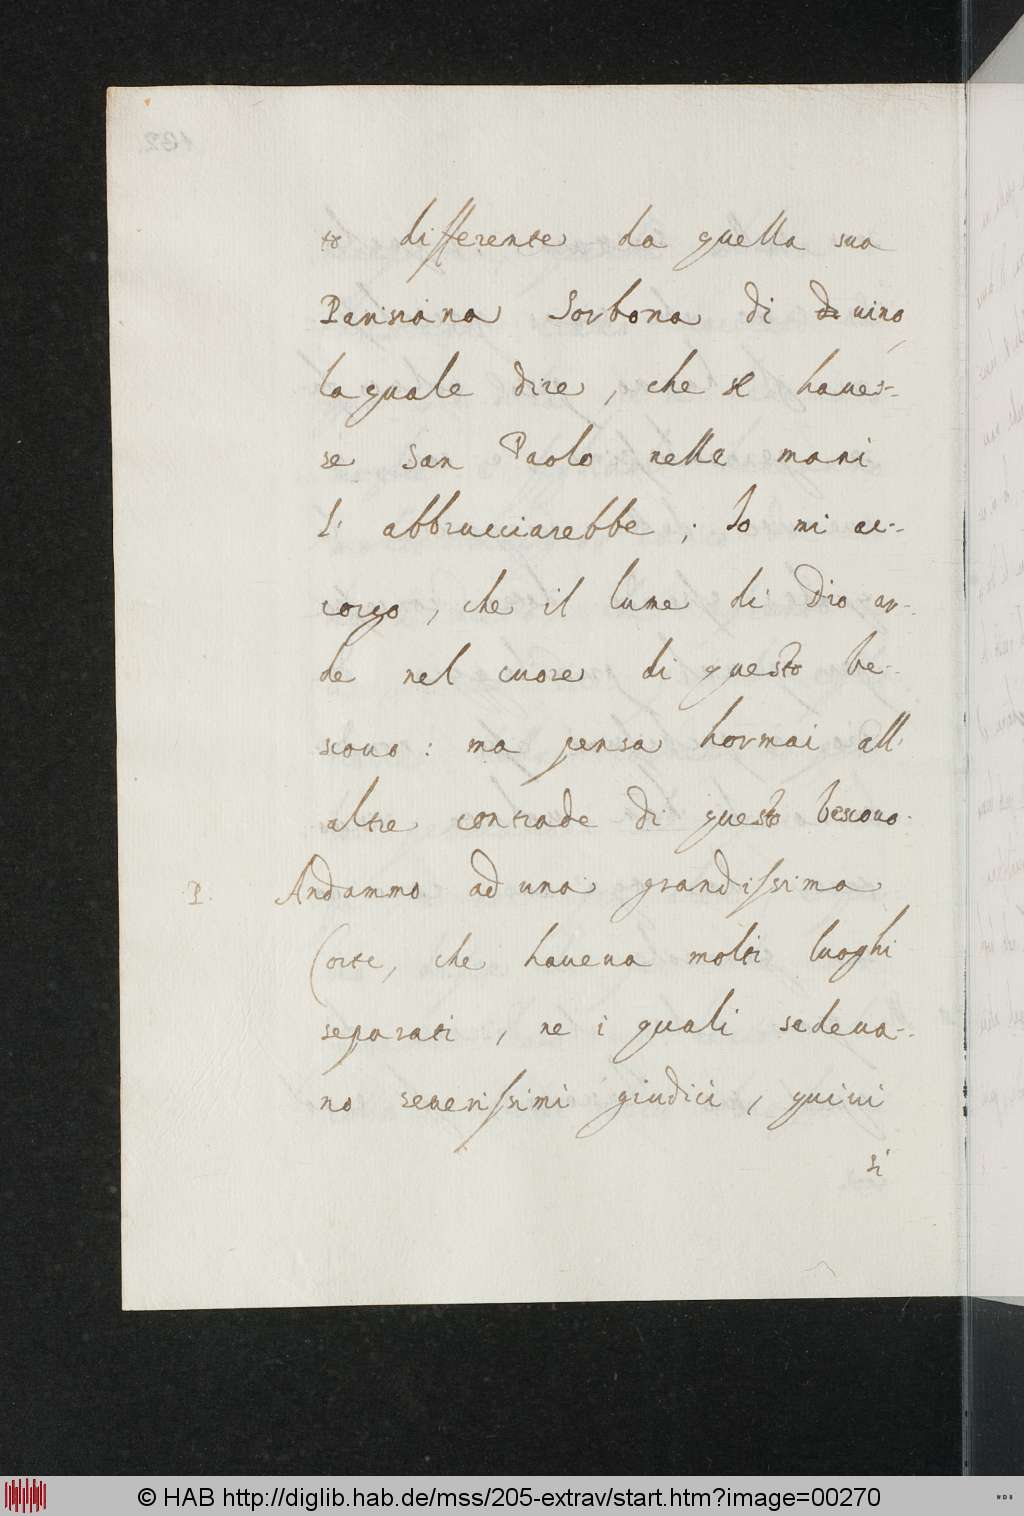 to differente da quella sua
Parisiana Sorbona di di vino,
laquale dice, che se haues-
se San Paolo nelle mani
l' abbrucciarebbe; Io mi ac-
corgo, che il lume di Dio ar-
de nel cuore di questo be-
scouo: ma pensa hormai all'
altre contrade di questo bescouo.
P. Andammo ad una grandissima
Corte, che haueua molti luoghi
separati, ne i quali sedeua-
no seuerissimi giudici, quiui
si
© HAB http://diglib.hab.de/mss/205-extrav/start.htm?image=00270